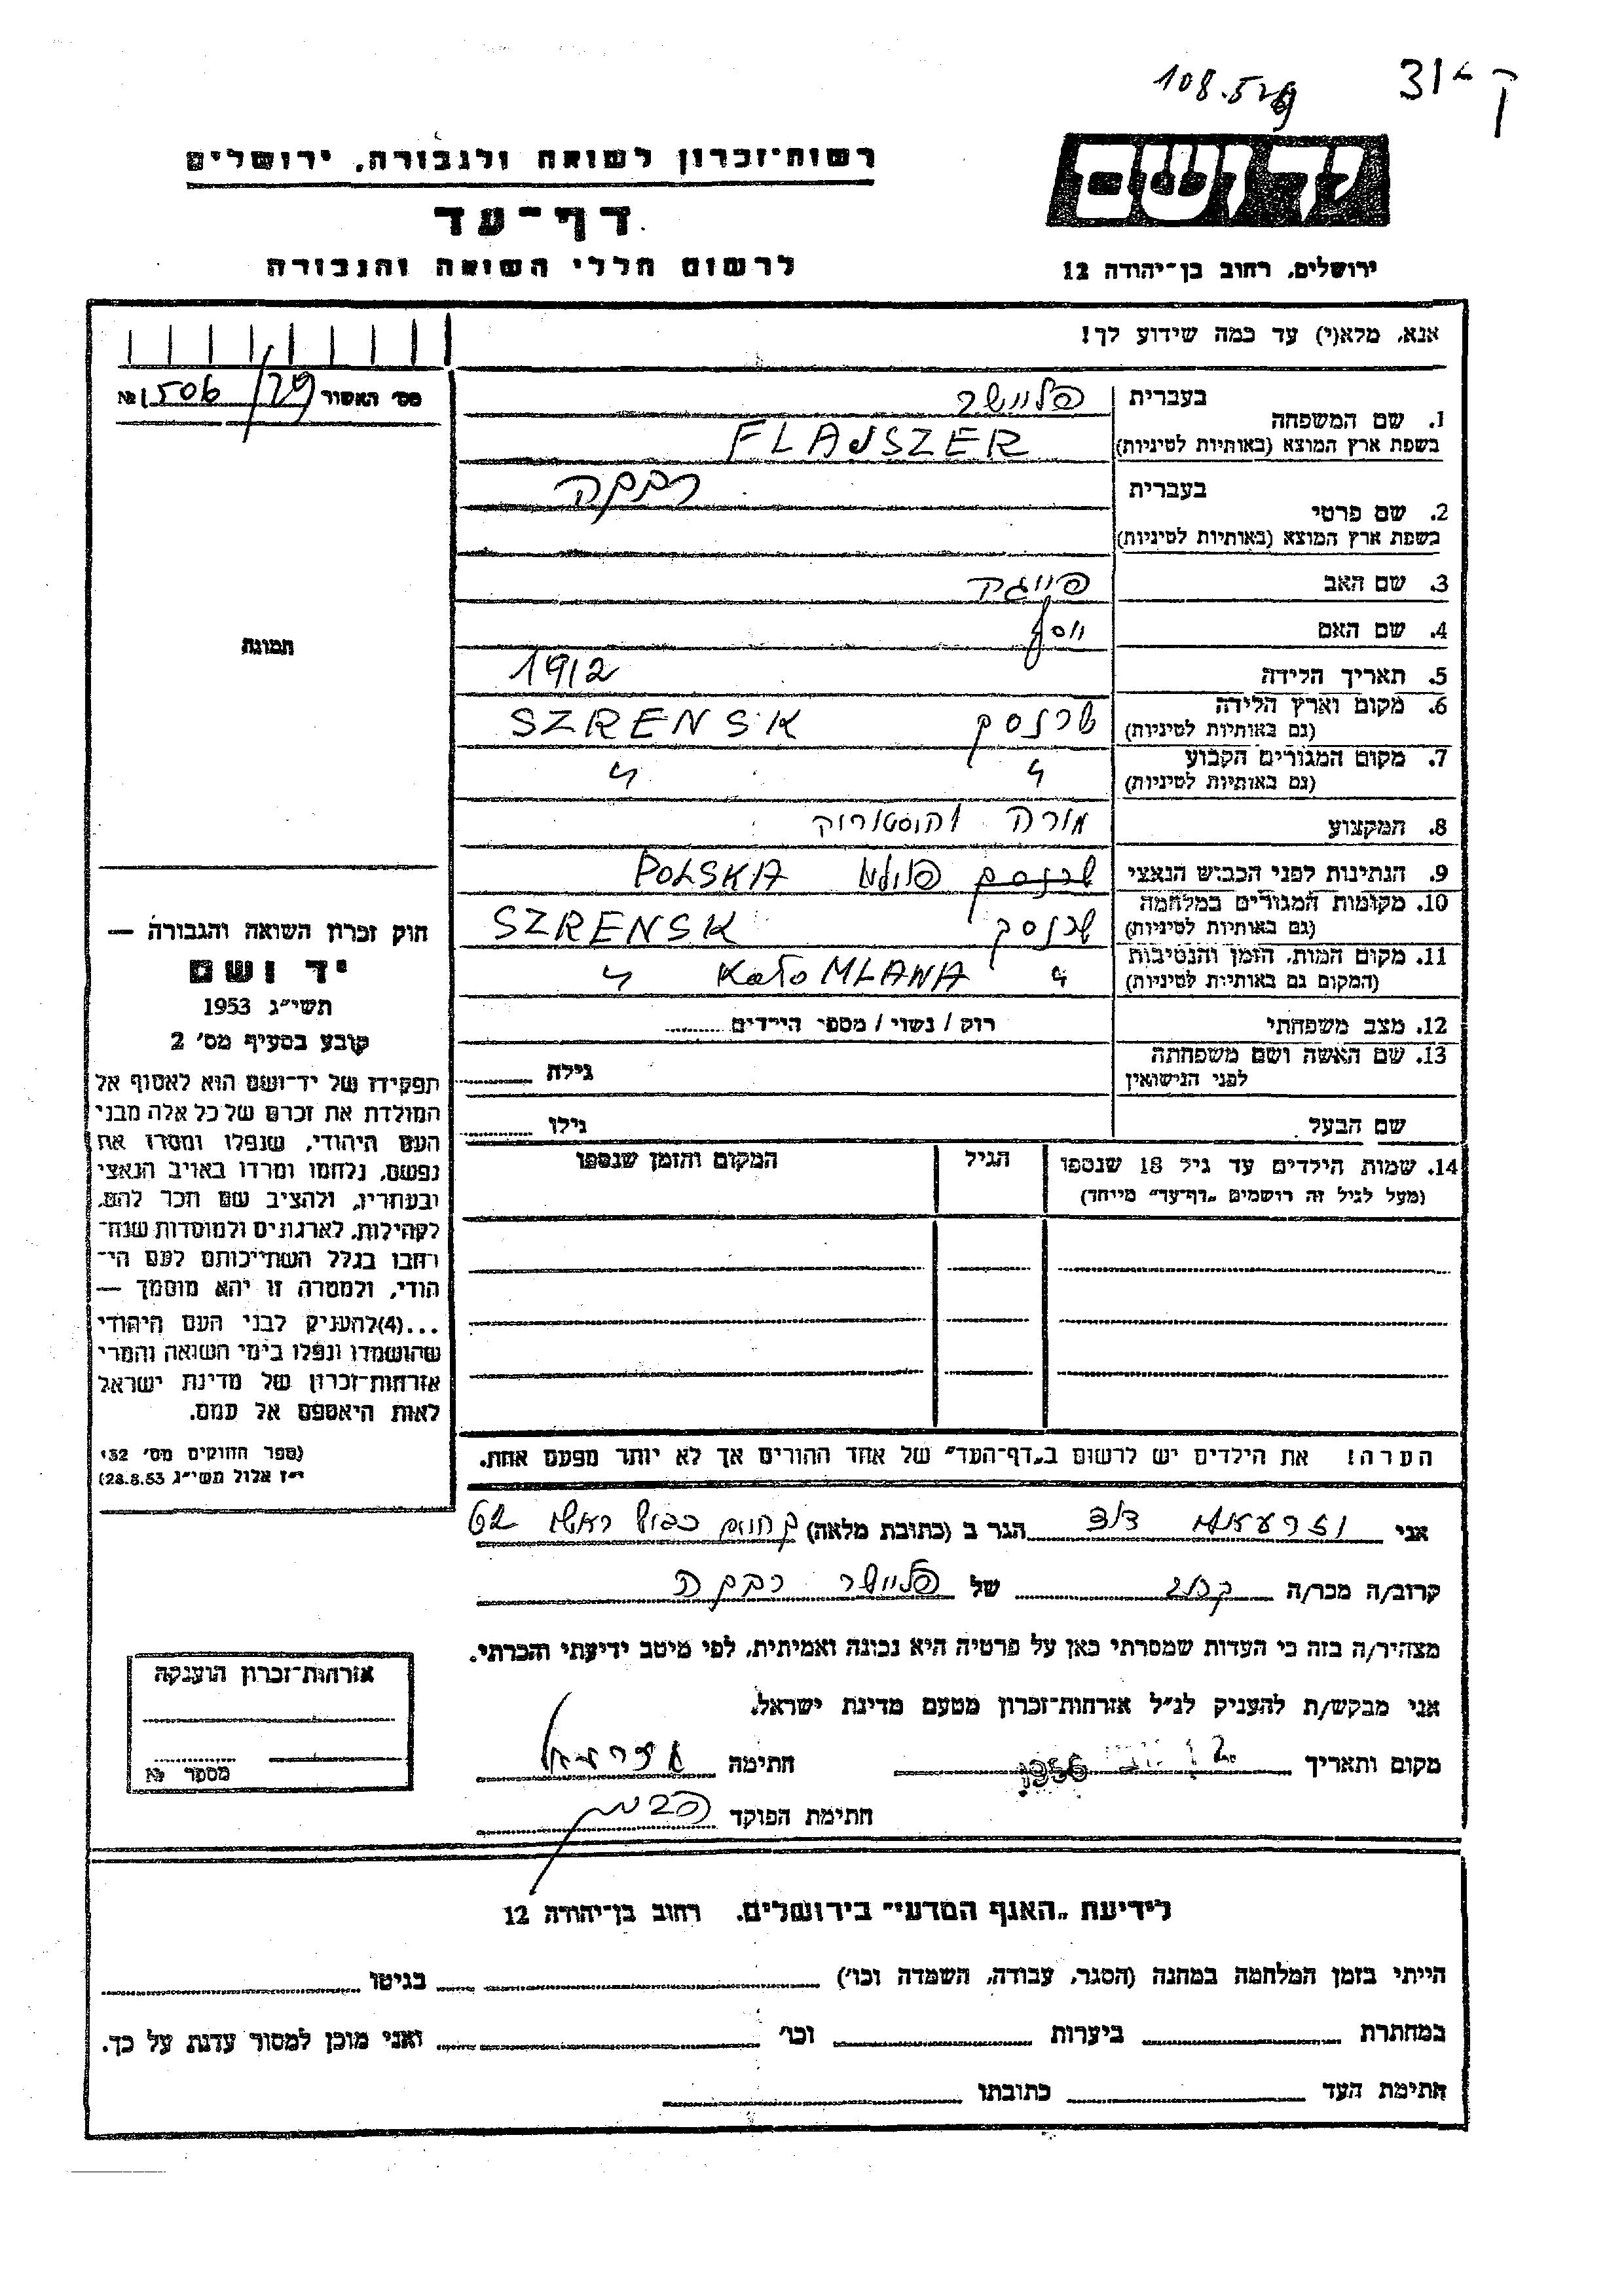 108.529
31
ק
יד ושם
רשות־זכרון לשואה ולגבורה, ירושלים
דף־עד
לרשום חללי השואה והגבורה
ירושלים, רחוב בן־יהודה 12
אנא, מלא(י) עד כמה שידוע לך!
מס׳ האסור 29/1506 №
1. שם המשפחה
בעברית פליישר
בשפת ארץ המוצא (באותיות לטיניות) FLAJSZER
2. שם פרטי
בעברית רבקה
בשפת ארץ המוצא (באותיות לטיניות)
3. שם האב פייגה
4. שם האם יוסף
5. תאריך הלידה 1912
6. מקום וארץ הלידה שרנסק SZRENSK
(גם באותיות לטיניות)
7. מקום המגורים הקבוע
(גם באותיות לטיניות)
8. המקצוע מורה
9. הנתינות לפני הכבוש הנאצי שרנסק פולין POLSKA
10. מקומות המגורים במלחמה שרנסק SZRENSK
(גם באותיות לטיניות)
11. מקום המות, הזמן והנסיבות Koło MLAWA
(המקום גם באותיות לטיניות)
12. מצב משפחתי רוק / נשוי / מספר הילדים
13. שם האשה ושם משפחתה גילה
לפני הנישואין
שם הבעל גילו
14. שמות הילדים עד גיל 18 שנספו
(מעל לגיל זה רושמים „דף־עד״ מייחד)
הגיל
המקום והזמן שנספו
הערה! את הילדים יש לרשום ב„דף־העד״ של אחד ההורים אך לא יותר מפעם אחת.
תמונת
חוק זכרון השואה והגבורה —
יד ושם
תשי״ג 1953
קובע בסעיף מס׳ 2
תפקידו של יד־ושם הוא לאסוף אל
המולדת את זכרם של כל אלה מבני
העם היהודי, שנפלו ומסרו את
נפשם, נלחמו ומרדו באויב הנאצי
ובעוזריו, ולהציב שם וזכר להם,
לקהילות, לארגונים ולמוסדות שנח־
רבו בגלל השתייכותם לעם הי־
הודי, ולמטרה זו יהא מוסמך —
...(4)להעניק לבני העם היהודי
שהושמדו ונפלו בימי השואה והמרי
אזרחות־זכרון של מדינת ישראל
לאות היאספם אל עמם.
(ספר החוקים מס׳ 132
י״ז אלול תשי״ג 28.8.53)
אני דוד הגר ב (כתובת מלאה)
קרוב/ה מכר/ה קרוב של פליישר רבקה
מצהיר/ה בזה כי העדות שמסרתי כאן על פרטיה היא נכונה ואמיתית, לפי מיטב ידיעתי והכרתי.
אני מבקש/ת להעניק לנ״ל אזרחות־זכרון מטעם מדינת ישראל.
מקום ותאריך 1956 חתימה
חתימת הפוקד
אזרחות־זכרון הוענקה
מספר №
לידיעת „האגף המדעי״ בירושלים, רחוב בן־יהודה 12
הייתי בזמן המלחמה במחנה (הסגר, עבודה, השמדה וכו׳) בגיטו
במחתרת ביערות וכו׳ ואני מוכן למסור עדות על כך.
חתימת העד כתובתו